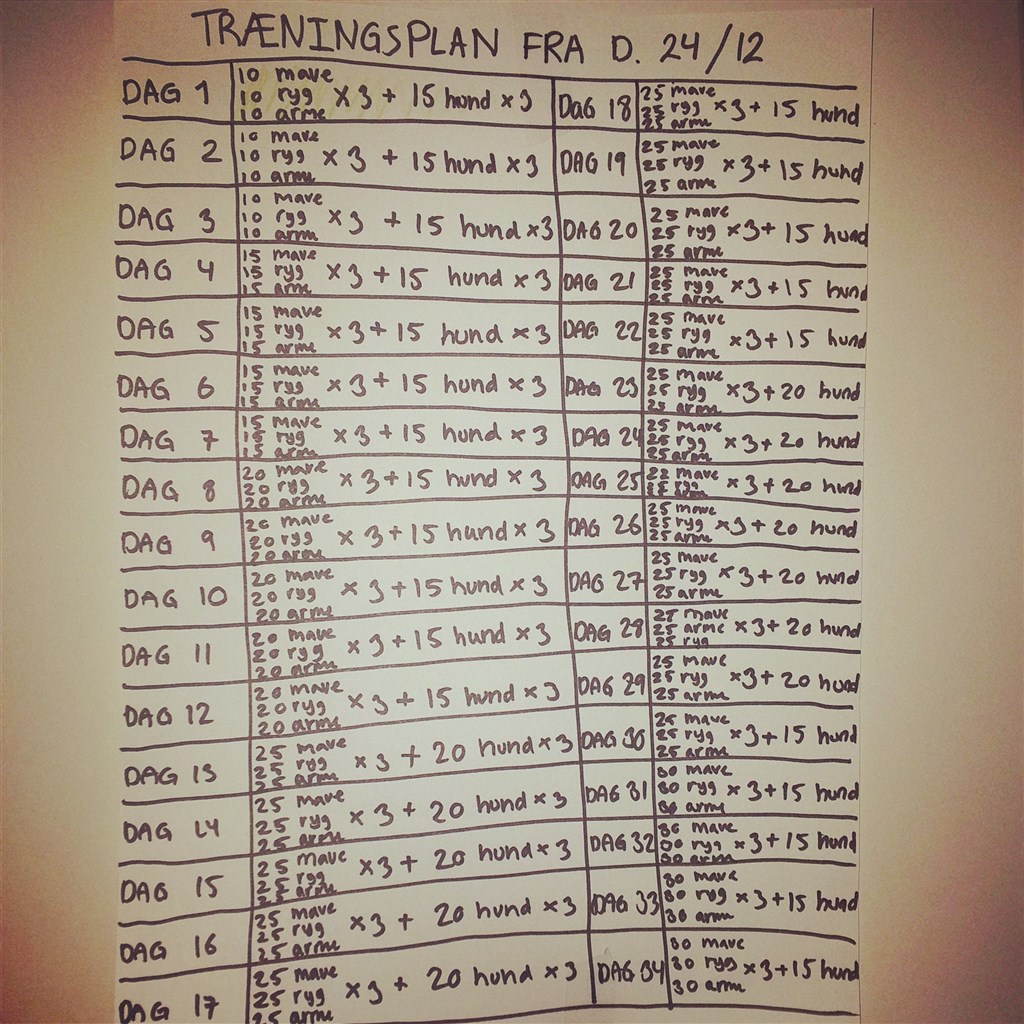 TRÆNINGSPLAN FRA D. 24/12
DAG 1
10 mave
10 ryg x 3 + 15 hund x 3
10 arme
DAG 2
10 mave
10 ryg x 3 + 15 hund x 3
10 arme
DAG 3
10 mave
10 ryg x 3 + 15 hund x 3
10 arme
DAG 4
15 mave
15 ryg x 3 + 15 hund x 3
15 arme
DAG 5
15 mave
15 ryg x 3 + 15 hund x 3
15 arme
DAG 6
15 mave
15 ryg x 3 + 15 hund x 3
15 arme
DAG 7
15 mave
15 ryg x 3 + 15 hund x 3
15 arme
DAG 8
20 mave
20 ryg x 3 + 15 hund x 3
20 arme
DAG 9
20 mave
20 ryg x 3 + 15 hund x 3
20 arme
DAG 10
20 mave
20 ryg x 3 + 15 hund x 3
20 arme
DAG 11
20 mave
20 ryg x 3 + 15 hund x 3
20 arme
DAG 12
20 mave
20 ryg x 3 + 15 hund x 3
20 arme
DAG 13
25 mave
25 ryg x 3 + 20 hund x 3
25 arme
DAG 14
25 mave
25 ryg x 3 + 20 hund x 3
25 arme
DAG 15
25 mave
25 ryg x 3 + 20 hund x 3
25 arme
DAG 16
25 mave
25 ryg x 3 + 20 hund x 3
25 arme
DAG 17
25 mave
25 ryg x 3 + 20 hund x 3
25 arme
DAG 18
25 mave
25 ryg x 3 + 15 hund
25 arme
DAG 19
25 mave
25 ryg x 3 + 15 hund
25 arme
DAG 20
25 mave
25 ryg x 3 + 15 hund
25 arme
DAG 21
25 mave
25 ryg x 3 + 15 hund
25 arme
DAG 22
25 mave
25 ryg x 3 + 15 hund
25 arme
DAG 23
25 mave
25 ryg x 3 + 20 hund
25 arme
DAG 24
25 mave
25 ryg x 3 + 20 hund
25 arme
DAG 25
22 mave
ryg x 3 + 20 hund
arme
DAG 26
25 mave
25 ryg x 3 + 20 hund
25 arme
DAG 27
25 mave
25 ryg x 3 + 20 hund
25 arme
DAG 28
25 mave
25 arme x 3 + 20 hund
25 ryg
DAG 29
25 mave
25 ryg x 3 + 20 hund
25 arme
DAG 30
25 mave
25 ryg x 3 + 15 hund
25 arme
DAG 31
30 mave
30 ryg x 3 + 15 hund
30 arme
DAG 32
30 mave
30 ryg x 3 + 15 hund
30 arme
DAG 33
30 mave
30 ryg x 3 + 15 hund
30 arme
DAG 34
30 mave
30 ryg x 3 + 15 hund
30 arme